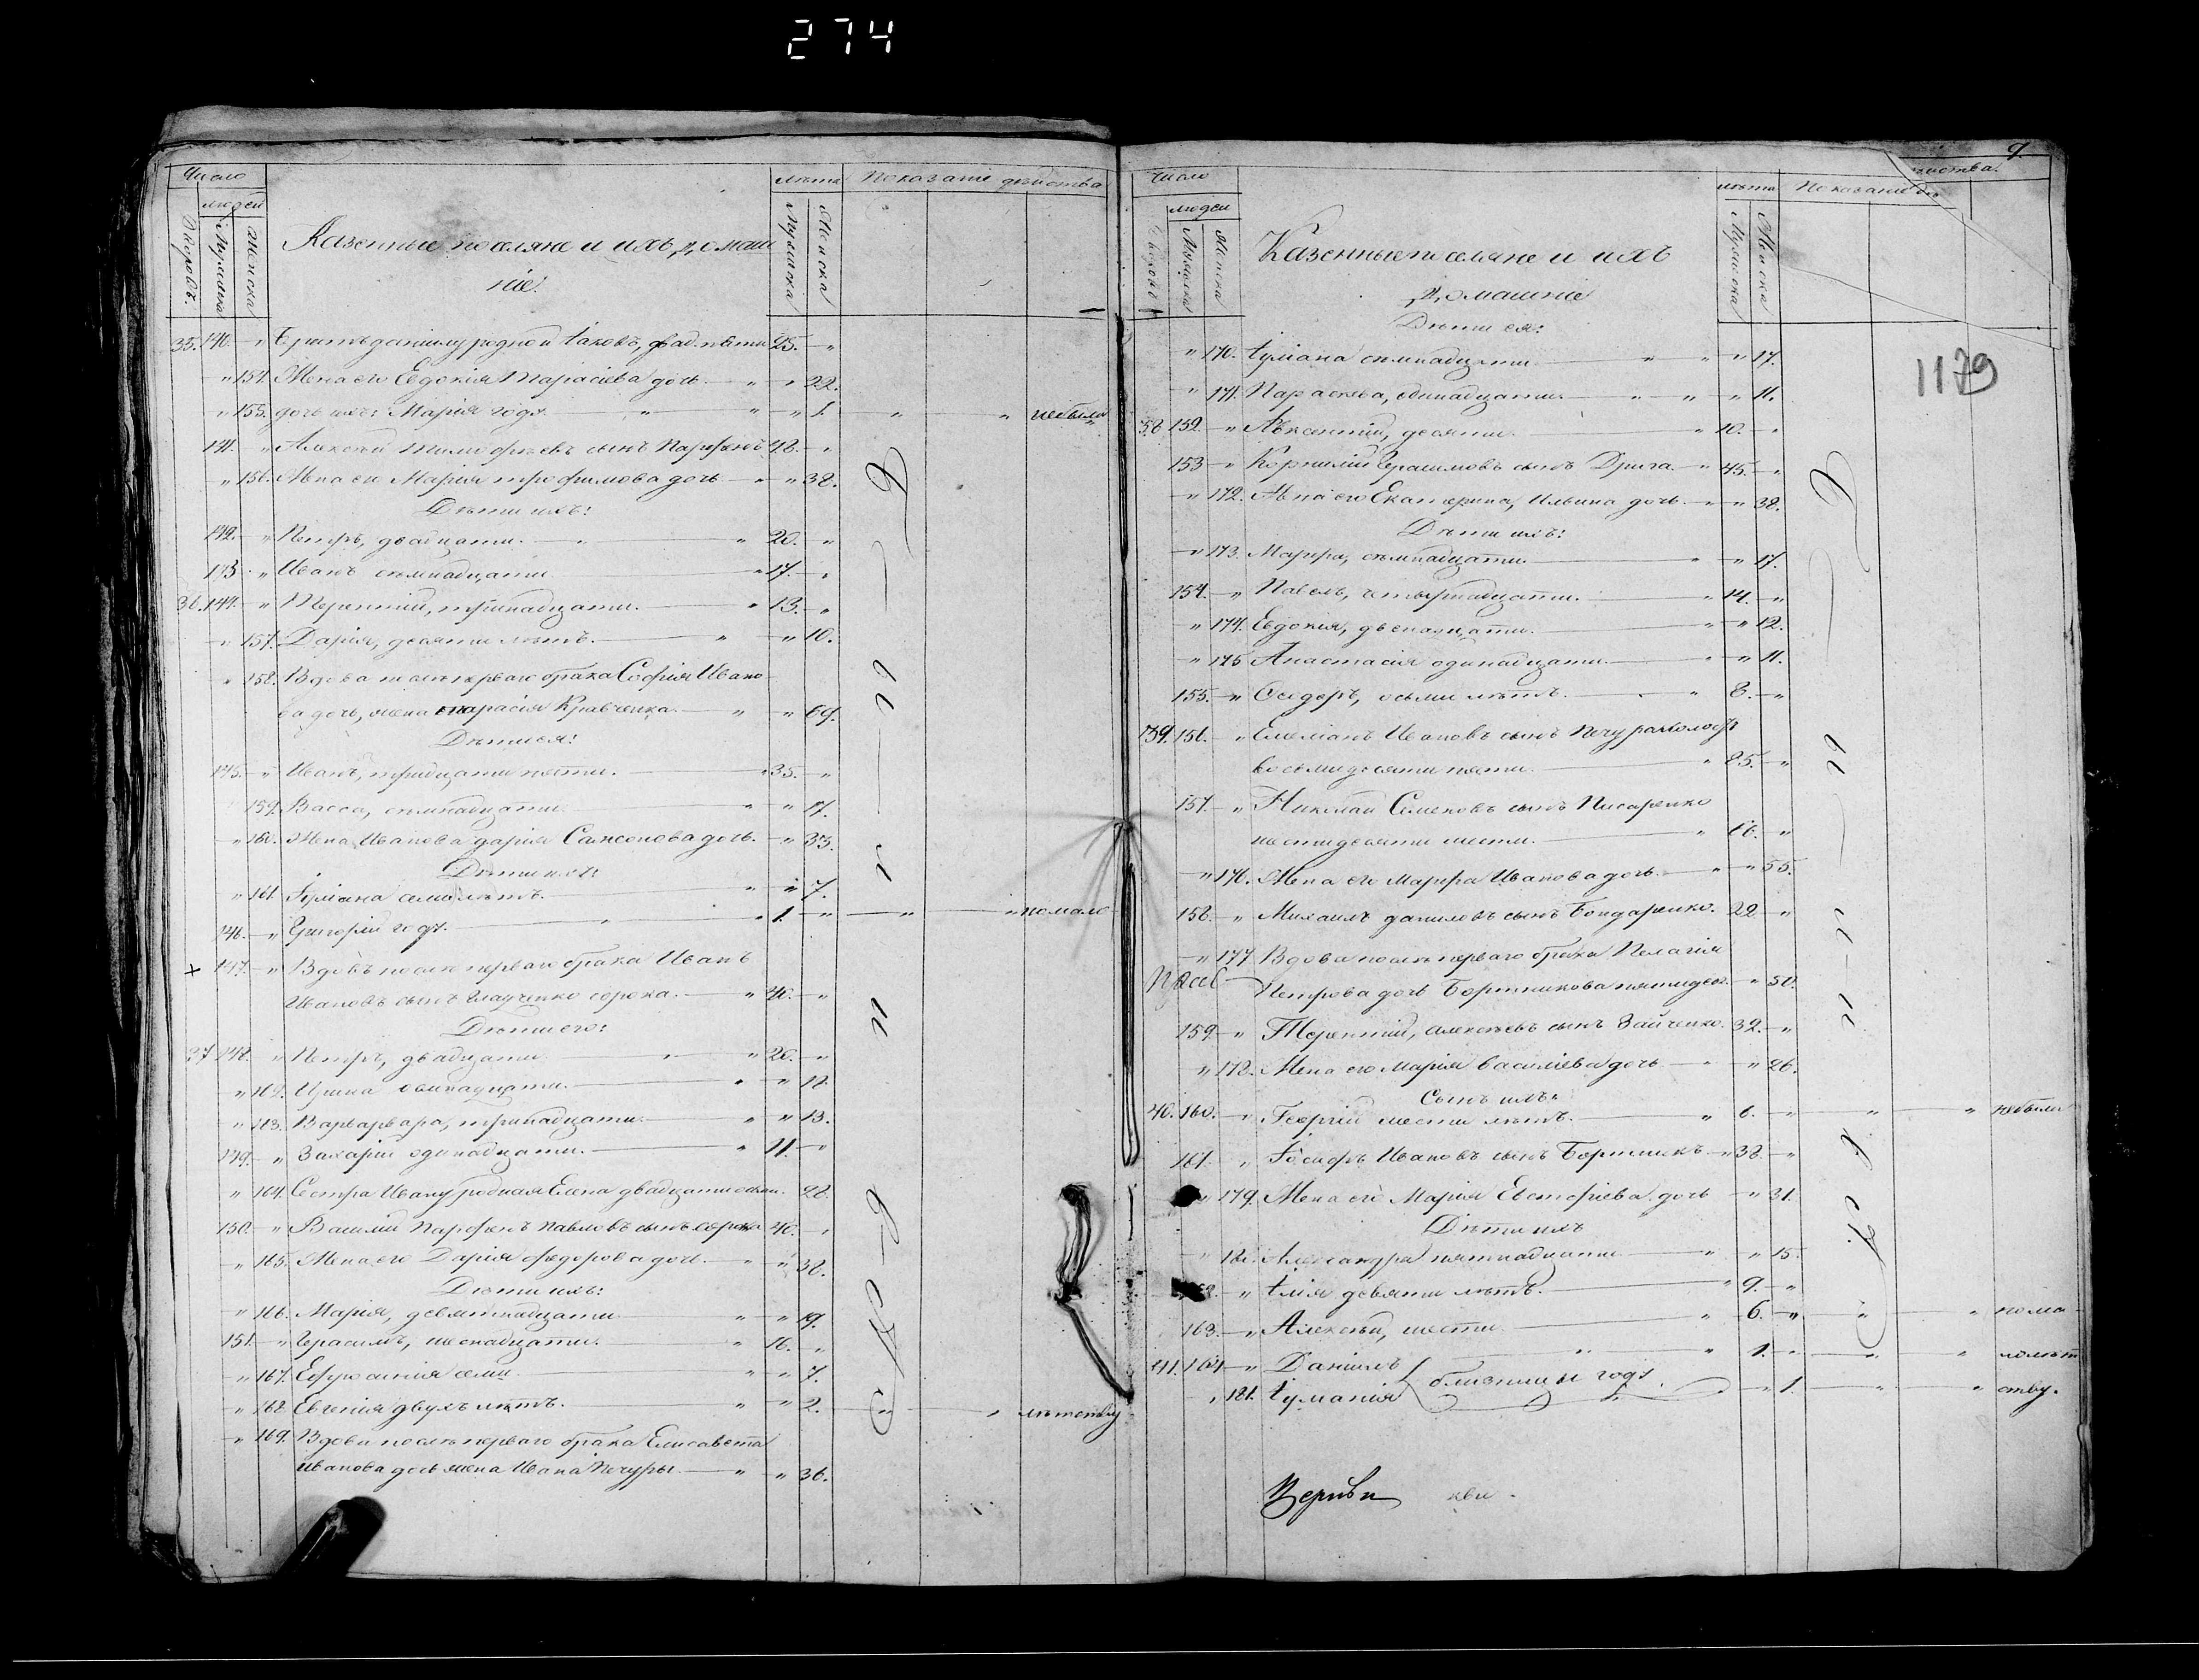 274
Число
людей
Дворовъ.
Мужеска
Женска
Казенные поселяне и ихъ домаш
ніе.
лѣта
Мужеска
Женска
Показаніе дѣйства
35. 140. " Братъ данилу родной Іаковъ, двад. пяти 25. "
" 154. Жена его Евдокія Тарасіева дочь " " 22.
" 155. дочь ихъ: Марія годъ " " 1. " " небыли
141. " Алексѣй Тимофѣевъ сынъ Парфенъ 48. "
" 156. Жена его Марія трофимова дочь " " 38.
Дѣти ихъ:
142. " Петръ, двадцати. " 20. "
143. " Иванъ семнадцати " 17. "
36. 144. " Терентій, тринадцати. " 13. "
" 157. Дарія, десяти лѣтъ. " " 10.
" 158. Вдова послѣ перваго брака Софія Ивано
ва дочь, жена тарасія Кравченка " " 69.
Дѣти ея:
145. " Иванъ, тридцати пяти. " 35. "
159. Васса, семнадцати " " 17.
" 160. Жена Иванова дарія Самсонова дочь. " 33.
Дѣти ихъ:
" 161. Іуліана семи лѣтъ. " " 7.
146. " Григорій годъ. " " 1. " " " по мало
+ 147. " Вдовъ послѣ перваго брака Иванъ
Ивановъ сынъ Гладченко сорока. " 40. "
Дѣти его:
37 148. " Петръ, двадцати " " 20. "
" 162. Ирина осмнадцати. " " 18.
" 163. Варварвара, тринадцати. " " 13.
149. " Захарій одинадцати. " 11. "
" 164. Сестра Ивану родная Елена двадцати осми. 28.
150. " Василій Парфенъ Павловъ сынъ сорока 40. "
" 165. Жена его Дарія федорова дочь. " " 38.
Дѣти ихъ:
" 166. Марія, девятнадцати " " 19.
151. " Герасимъ, шеснадцати. " 16. "
" 167. Ефросинія семи " " 7.
" 168. Евгенія двухъ лѣтъ. " " 2. " " лѣтству
" 169. Вдова послѣ перваго брака Елисавета
Иванова дочь жена Ивана Печуры. " " 36.
9.
Число
людей
Мужеска
Женска
Казенные поселяне и ихъ
домашніе
лѣта
Мужеска
Женска
Показаніе дѣ
йства.
1179
Дѣти ея:
" 170. Іуліана семнадцати " " " 17.
" 171. Параскева, одинадцати. " " " 11.
38. 152. " Авксентій, десяти. " 10. "
153. " Корнилій Герасимовъ сынъ Дрига. " 45. "
" 172. Жена его Екатерина, Ильина дочь " " 38.
Дѣти ихъ:
" 173. Марфа, семнадцати. " " 17.
154. " Павелъ, четырнадцати. " 14. "
" 174. Евдокія, двенадцати. " " 12.
" 175 Анастасія одинадцати. " " 11.
155. " Сидоръ, осьми лѣтъ. " " 8. "
39. 156. " Емеліанъ Ивановъ сынъ Печура холостъ
восемидесяти пяти. " 85. "
157. " Николай Семеновъ сынъ Писаренко
шестидесяти шести. " 66. "
" 176. Жена его Марфа Иванова дочь. " " 55.
158. " Михаилъ даниловъ сынъ Бондаренко. 22. "
" 177. Вдова послѣ перваго брака Пелагія
Петрова дочь Бортникова пятидес. " 50.
159. " Терентій, алексѣевъ сынъ Зайченко. 32. "
" 178. Жена его Марія Василіева дочь " " 26.
Сынъ ихъ:
40. 160. " Георгій шести лѣтъ. " 6. " " " небыли
161. " Іосифъ Ивановъ сынъ Бортникъ " 38. "
" 179. Жена его Марія Евстафіева дочь " 31.
Дѣти ихъ
" 180. Александра пятнадцати " " 15.
162. " Илія девяти лѣтъ. " 9. "
163. " Алексѣй, шести " 6. " " " по ма
41. 164. " Даніилъ " " 1. " " " лолѣт
" 181. Іуліанія близнецы годъ. " 1. " " ству.